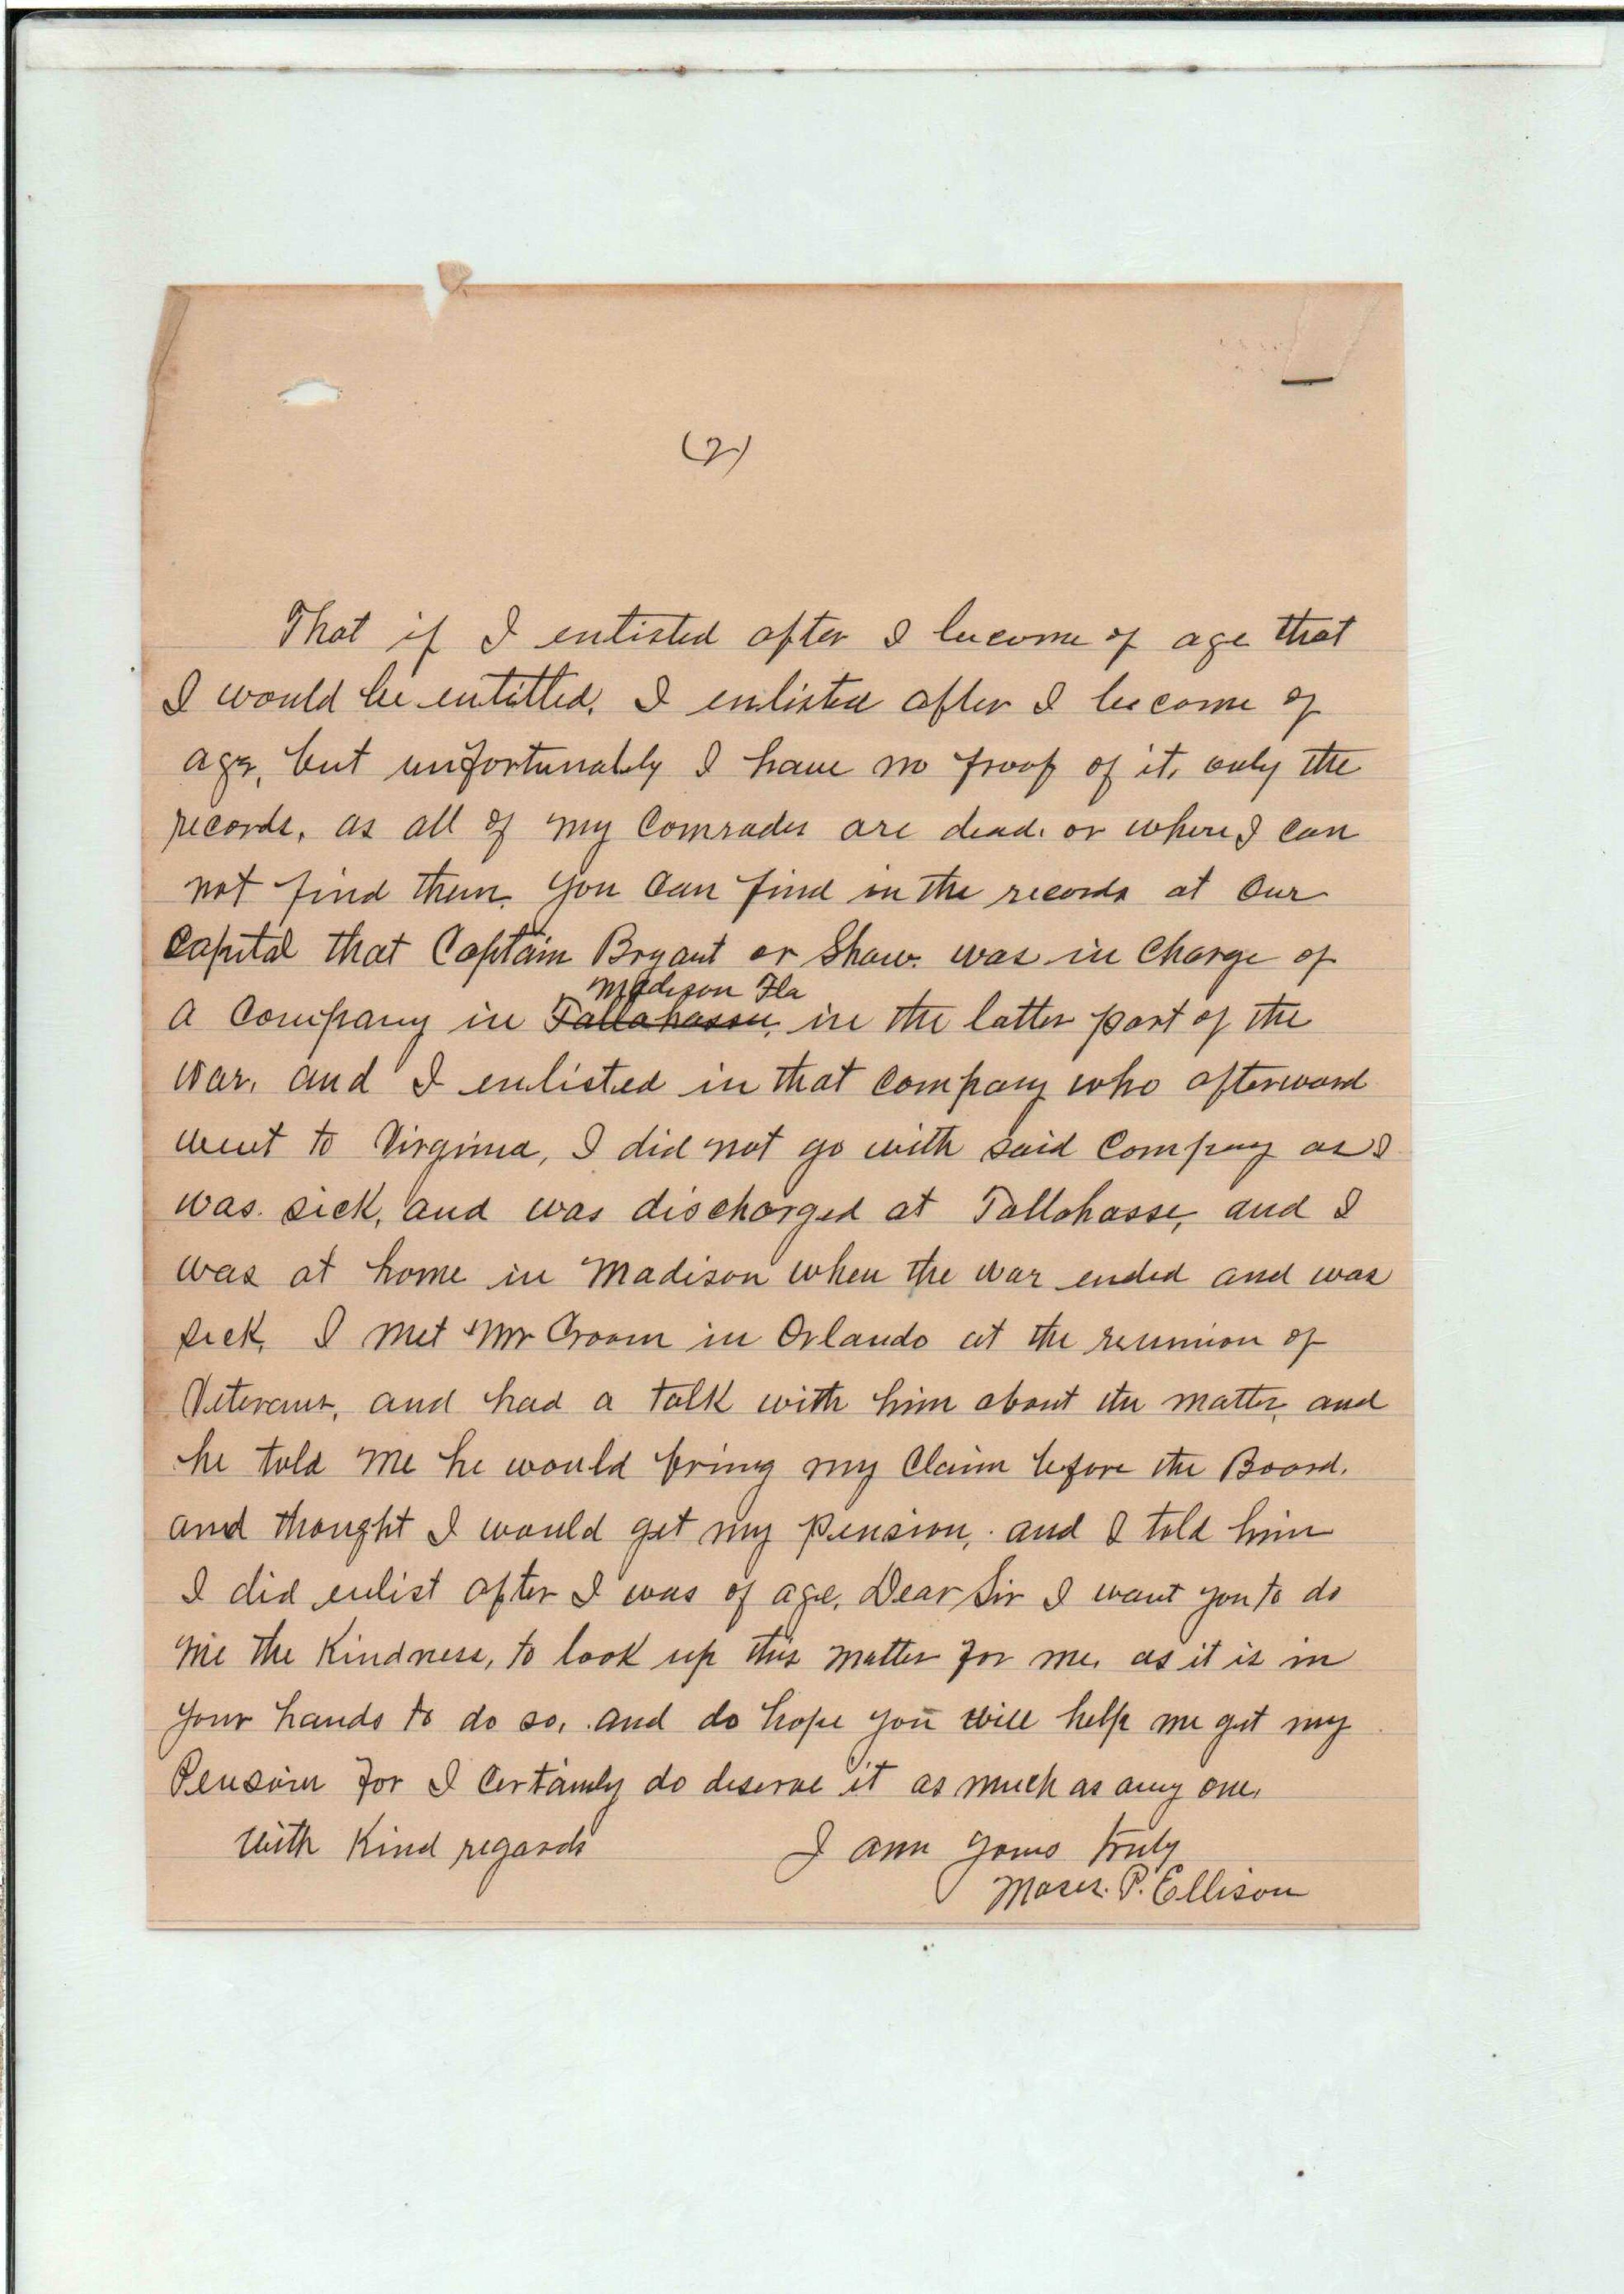 (2)
That if I entisted after I become of age that
I would be entitled. I enlisted after I become of
age, but unfortunately I have no proof of it, only the
records, as all of my Comrades are dead. or where I can
not find them. You can find in the records at our
Capital that Captain Bryant or Shaw. was in charge of
Madison Fla
a Company in Tallahassee, in the latter part of the
war. and I enlisted in that company who afterward
went to Virginia, I did not go with said Company as I
was sick, and was discharged at Tallahasse, and I
was at home in Madison when the war ended and was
sick. I met Mr Croom in Orlando at the reunion of
Veterans, and had a talk with him about the matter, and
he told me he would bring my Claim before the Board.
and thought I would get my Pension, and I told him
I did enlist after I was of age. Dear Sir I want you to do
me the Kindness, to look up this matter for me. as it is in
your hands to do so, and do hope you will help me get my
Pension for I certainly do deserve it as much as any one.
With Kind regards I am yours truly
Moses. P. Ellison